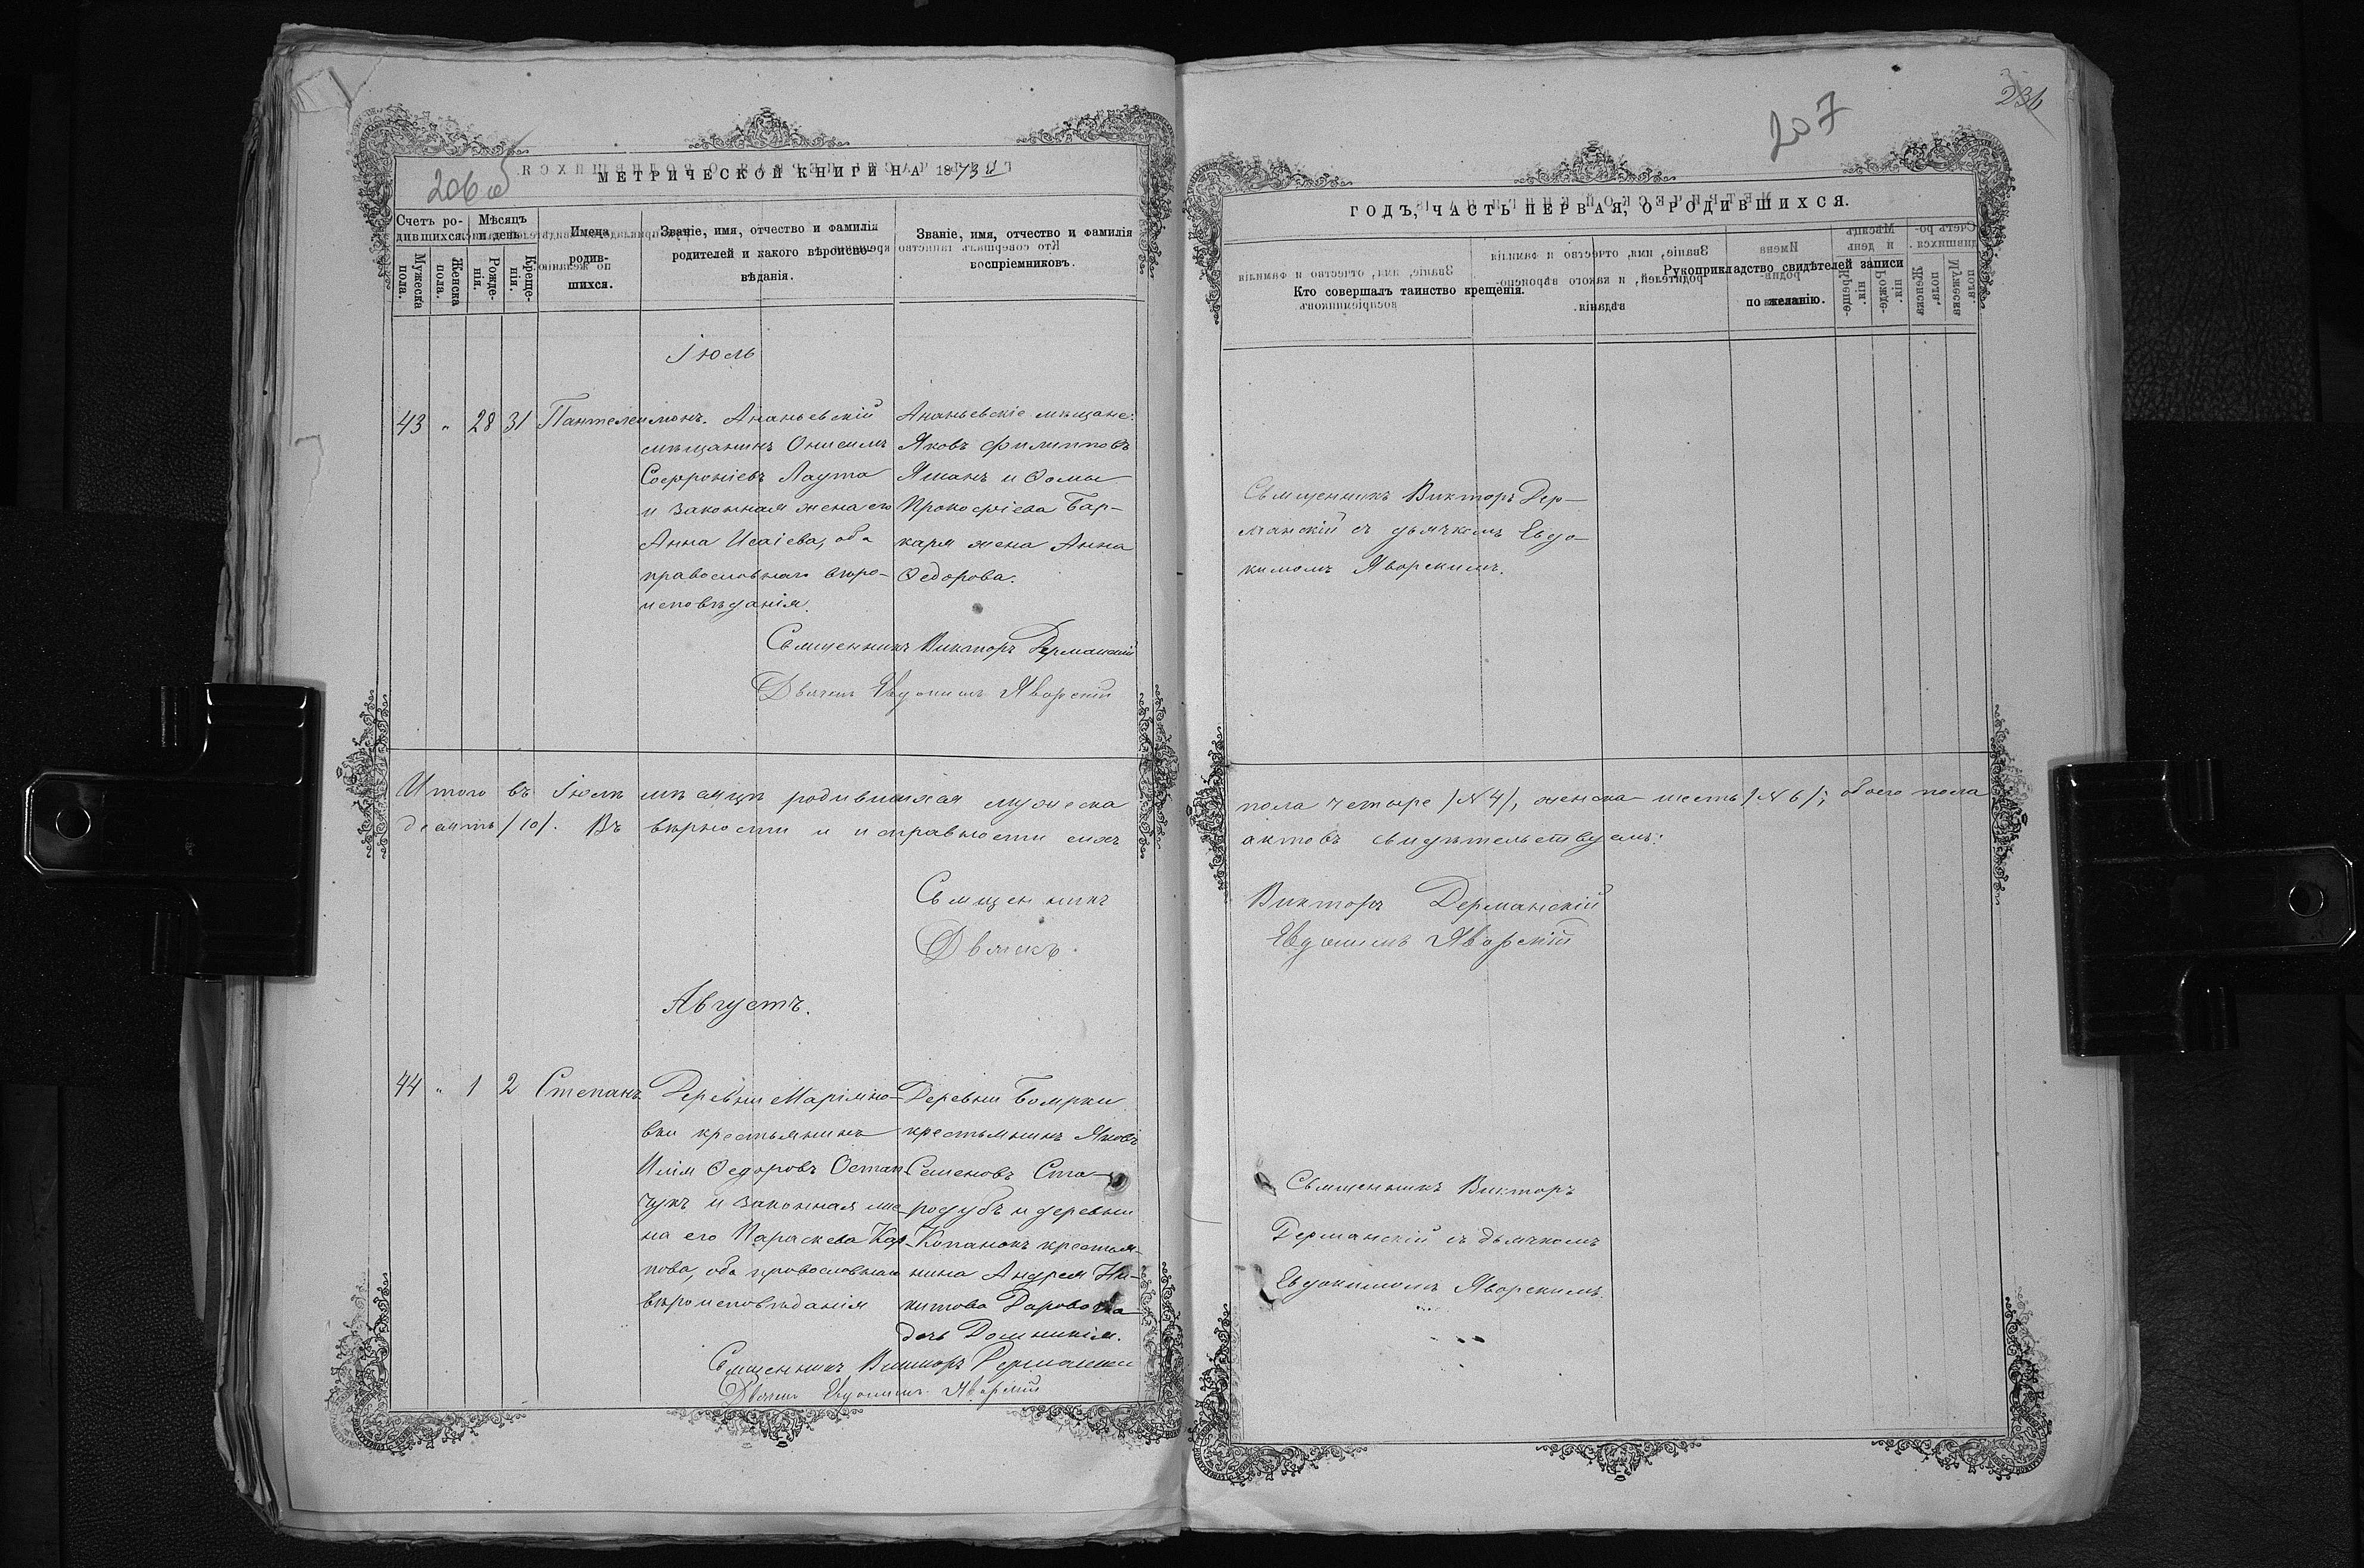 206 об
МЕТРИЧЕСКОЙ КНИГИ НА 1873й
Счетъ ро-
дившихся.
Мужеска пола.
Женска пола.
Мѣсяцъ
и день
Рожде-
нія.
Креще-
нія.
Имена
родив-
шихся.
Званіе, имя, отчество и фамилія
родителей и какого вѣроиспо-
вѣданія.
Званіе, имя, отчество и фамилія
воспріемниковъ.
Іюль
43 " 28 31 Пантелеимонъ.
Ананьевскій
мѣщанинъ Онисимъ
Софроніевъ Лаута
и законная жена его
Анна Исаіева, оба
православнаго вѣро-
исповѣданія.
Ананьевскіе мѣщане:
Яковъ Филипповъ
Яманъ и Ѳомы
Прокофіева Бар-
каря жена Анна
Ѳедорова.
Священникъ Викторъ Дерманскій
Дьячекъ Евдокимъ Яворскій
Итого въ Іюлѣ мѣсяцѣ родившихся мужеска
десять /10/. Въ вѣрности и исправности сихъ
Священникъ
Дьячекъ
Августъ.
44 " 1 2 Степанъ
Деревни Маріяно-
вки крестьянинъ
Илія Ѳедоровъ Остап-
чукъ и законная же-
на его Параскева Кар-
пова, оба православнаго
вѣроисповѣданія
Деревни Боярки
крестьянинъ Яковъ
Семеновъ Ста-
родубъ и деревни
Копанокъ крестья-
нина Андрея Ни-
китова
дочь Домникія.
Священникъ Викторъ Дерманскій
Дьячекъ Евдокимъ Яворскій
207
236
ГОДЪ, ЧАСТЬ ПЕРВАЯ, О РОДИВШИХСЯ.
Кто совершалъ таинство крещенія.
Рукоприкладство свидѣтелей записи
по желанію.
Священникъ Викторъ Дер-
манскій съ дьячкомъ Евдо-
кимомъ Яворскимъ.
пола четыре /№ 4/, женска шесть /№ 6/; обоего пола
актовъ свидѣтельствуемъ:
Викторъ Дерманскій
Евдокимъ Яворскій
Священникъ Викторъ
Дерманскій съ дьячкомъ
Евдокимомъ Яворскимъ.